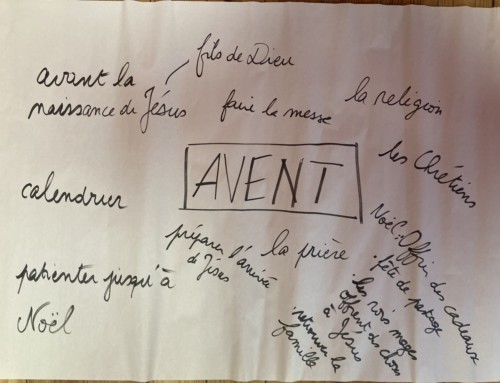 fils de Dieu
avant la
naissance de Jésus
faire la messe
la religion
les Chrétiens
AVENT
calendrier
préparer l'arrivée
de Jésus
la prière
patienter jusqu'à
Noël
Noël: Offrir des cadeaux
. fête de partage
. les rois mages
offrent des dons
à Jésus
. retrouver la
famille